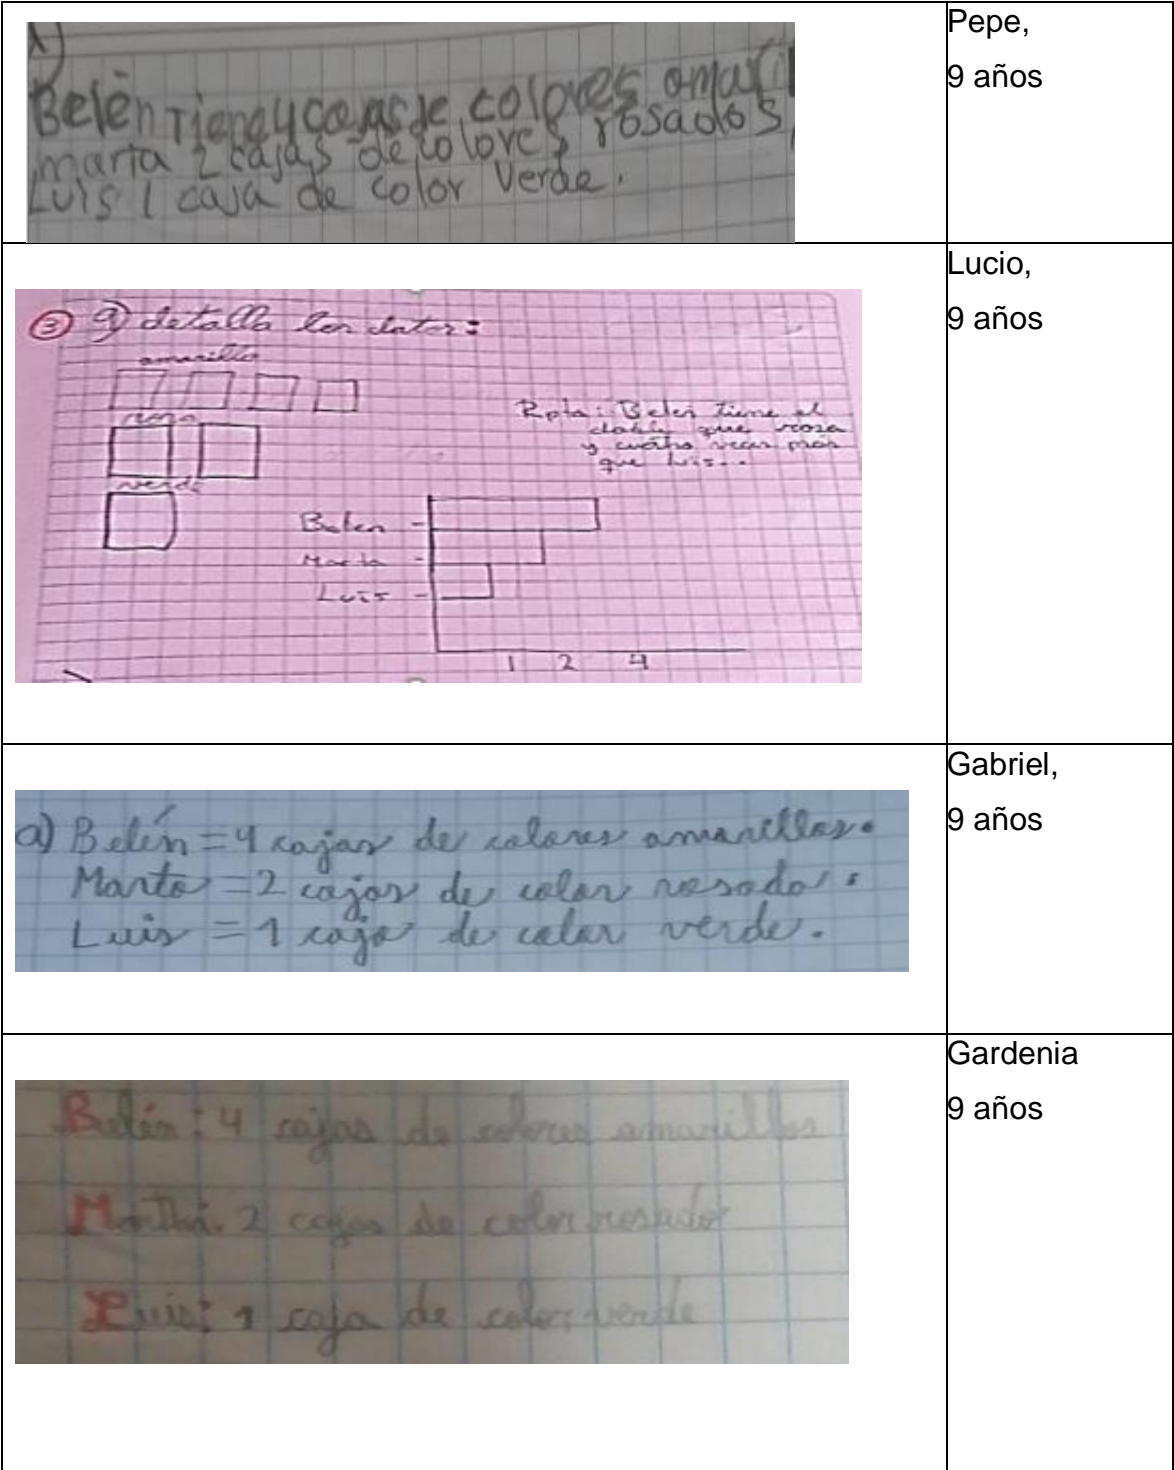 Belén Tiene 4 cajas de colores amaril
maria 2 cajas de colores rosados,
Luis 1 caja de color Verde.
Pepe,
9 años
3 a) detalla los datos:
amarillo
rosa
verde
Rpta: Belen tiene el
doble que
y cuatro veces más
que luis..
Belen
Marta
Luis
1 2 4
Lucio,
9 años
a) Belén = 4 cajas de colores amarillas.
Marta = 2 cajas de color rosado.
Luis = 1 caja de color verde.
Gabriel,
9 años
Belén: 4 cajas de colores amarillos
Martha. 2 cajas de color rosado
Luis: 1 caja de color verde
Gardenia
9 años